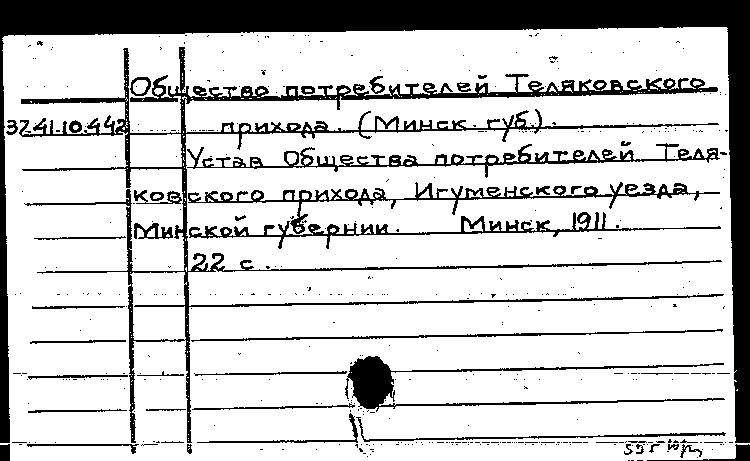 Общество потребителей Теляковского
37.41.10.442 прихода. (Минск. губ.).
Устав Общества потребителей Теля-
ковского прихода, Игуменского уезда,
Минской губернии. Минск, 1911.
22 с.